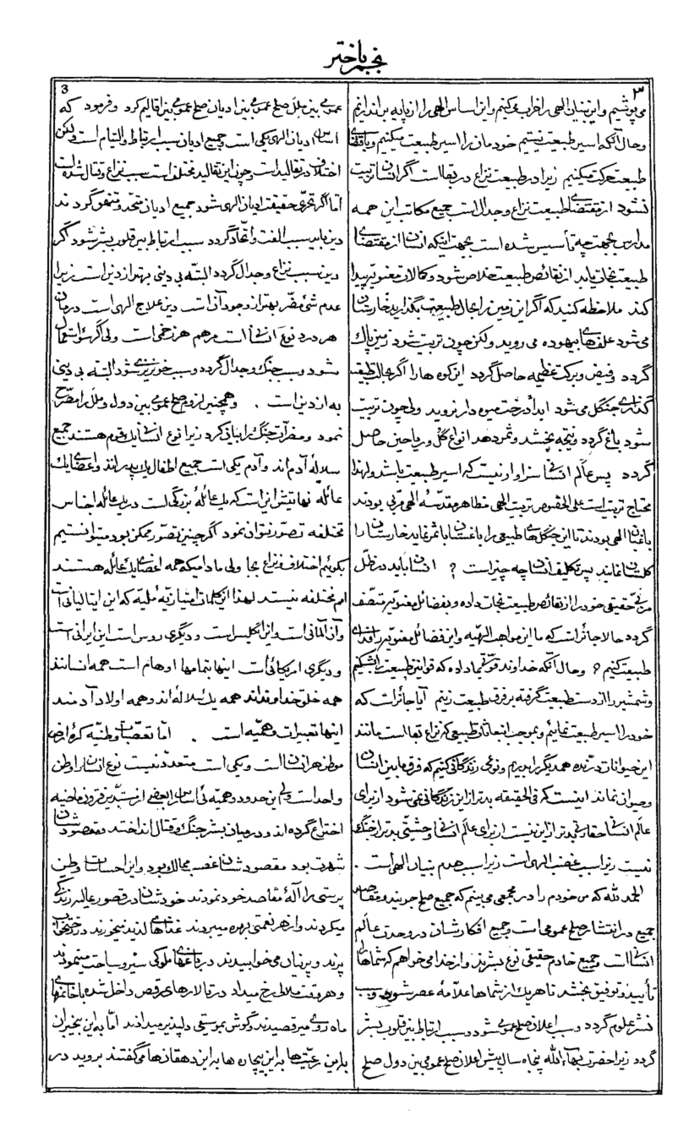 نجم باختر
۳
می‌پوشیم و این بنیان الهی را خراب میکنیم و این اساس الهی را از پایه براندازیم
و حال آنکه اسیر طبیعت نیستیم خودمان را اسیر طبیعت میکنیم و باقتضای
طبیعت حرکت میکنیم زیرا در طبیعت نزاع در بقاست اگر انسان تربیت
نشود از مقتضای طبیعت نزاع و جدال است جمیع مکاتب این همه
مدارس بجهت چه تأسیس شده است بجهت اینکه انسان از مقتضای
طبیعت نجات یابد از نقائص طبیعت خلاص شود و کمالات معنویه پیدا
کند ملاحظه کنید که اگر این زمین را بحال طبیعت بگذارید خارستان
می‌شود علف‌های بیهوده می روید ولکن چون تربیت شود زمین پاک
گردد و فیض و برکت عظیمه حاصل گردد این کوه ها را اگر بحال طبیعت
گذاری جنگل می شود ابداً درخت میوه دار نروید ولی چون تربیت
شود باغ گردد و نتیجه بخشد و ثمر دهد انواع گل و ریاحین حاصل
گردد پس عالم انسانی سزاوار نیست که اسیر طبیعت باشد و لهذا
محتاج تربیت است علی الخصوص تربیت الهی مظاهر مقدسه الهی مربی بودند
باغبان الهی بودند تا این جنگل‌های طبیعی را باغستان باثمر نماید خارستان را
گلستان نمایند پس تکلیف انسان چه چیز است ؟ انسان باید در ظل
مربی حقیقی خود را از نقائص طبیعت نجات داده و بفضائل معنویه متصف
گردد حالا جائز است که ما این مواهب الهیه و این فضائل معنویه را فدای
طبیعت کنیم ؟ و حال آنکه خداوند قوتی بما داده که قوانین طبیعت را بشکنیم
و شمشیر را از دست طبیعت گرفته بر فرق طبیعت زنیم آیا جائز است که
خود را اسیر طبیعت نمائیم و بموجب انبعاثات طبیعی که نزاع بقاست مانند
این حیوانات درنده همدیگر را بدریم و نوعی زندگانی کنیم که فرق مابین انسان
و حیوان نماند اینست که فی الحقیقه بدتر از این زندگانی نمی شود از برای
عالم انسانی حقارتی بدتر از این نیست از برای عالم انسانی وحشتی بدتر از جنگ
نیست زیرا سبب غضب الهی است زیرا سبب هدم بنیاد الهی است .
الحمد لله که من خودم را در مجمعی می بینم که جمیع صلح جویند و مقاصد
جمیع در انتشار صلح عمومی است و جمیع افکارشان در وحدت عالم
انسانی است و جمیع خادم حقیقی نوع بشرند و از خدا می خواهم که شماها را
تأیید و توفیق بخشد تا هر یک از شماها علامه عصر شوید و سبب
نشر علوم گردد و سبب اعلان صلح عمومی شود و سبب ارتباط بین قلوب بشر
گردد زیرا حضرت بهاءالله پنجاه سال پیش اعلان صلح عمومی بین دول صلح
3
عمومی بین ملل صلح عمومی بین ادیان صلح عمومی بین اقالیم کرد و فرمود که
اساس ادیان الهی یکی است و جمیع ادیان سبب ارتباط و التیام است ولکن
اختلاف در تقالید است و چون این تقالید مختلف است سبب نزاع و قتال شده است
اما اگر تحری حقیقت ادیان الهی شود جمیع ادیان متحد و متفق گردند
دین باید سبب الفت و اتحاد گردد سبب ارتباط بین قلوب بشر شود اگر
دین سبب نزاع و جدال گردد البته بی دینی بهتر از دین است زیرا
عدم شئ مضر بهتر از وجود آنست دین علاج الهی است درمان
هر درد نوع انسانی است مرهم هر زخمی است ولی اگر سوء استعمال
شود و سبب جنگ و جدال گردد و سبب خونریزی شود البته بی دینی
به از دین است . و همچنین لزوم صلح عمومی بین دول و ملل را مصرح
نمود و مضرات جنگ را بیان کرد زیرا نوع انسان یک قوم هستند جمیع
سلاله آدم اند و آدم یکی است جمیع اطفال یک پدرند و اعضای یک
عائله نهایتش این است که یک عائله بزرگی است در یک عائله اجناس
مختلفه تصور نتوان نمود اگر چنین تصور ممکن بود میتوانستیم
بگوئیم اختلاف و نزاع بجا ولی مادامیکه همه اعضای یک عائله هستند
امم مختلفه نیستند لهذا این کلمات امتیازیه ملیه که این ایتالیائی است
و آن آلمانی است و این انگلیس است و دیگری روس است این ایرانی است
و دیگری امریکائی است اینها بتمامها اوهام است همه انسانند
همه خلق خداوند اند همه یک سلاله اند و همه اولاد آدمند
اینها تعبیرات وهمیه است . اما تعصبات وطنیه کره ارض
موطن هر انسانی است و یکی است متعدد نیست نوع انسان را وطن
واحد است ولی این حدود وهمیه بی اساس را بعضی از مستبدین قرون ماضیه
اختراع کرده اند و در میان بشر جنگ و قتال انداختند و مقصودشان
شهرت بود مقصودشان غصب ممالک بود و این احساسات وطن
پرستی را آلة مقاصد خود نمودند خودشان در قصور عالیه زندگی
میکردند و از هر نعمتی بهره میبردند غذاهای لذیذ میخوردند و در رختخواب
پرند و پرنیان می خوابیدند در باغهای ملوکی سیر و سیاحت مینمودند
و هر وقت ملالی رخ میداد در تالارهای رقص داخل شده با خانمهای
ماه روئی میرقصیدند و گوش بموسیقی دلپذیر میدادند اما به این رنجبران
به این رعیتها به این بیچاره ها به این دهقانها می گفتند بروید در